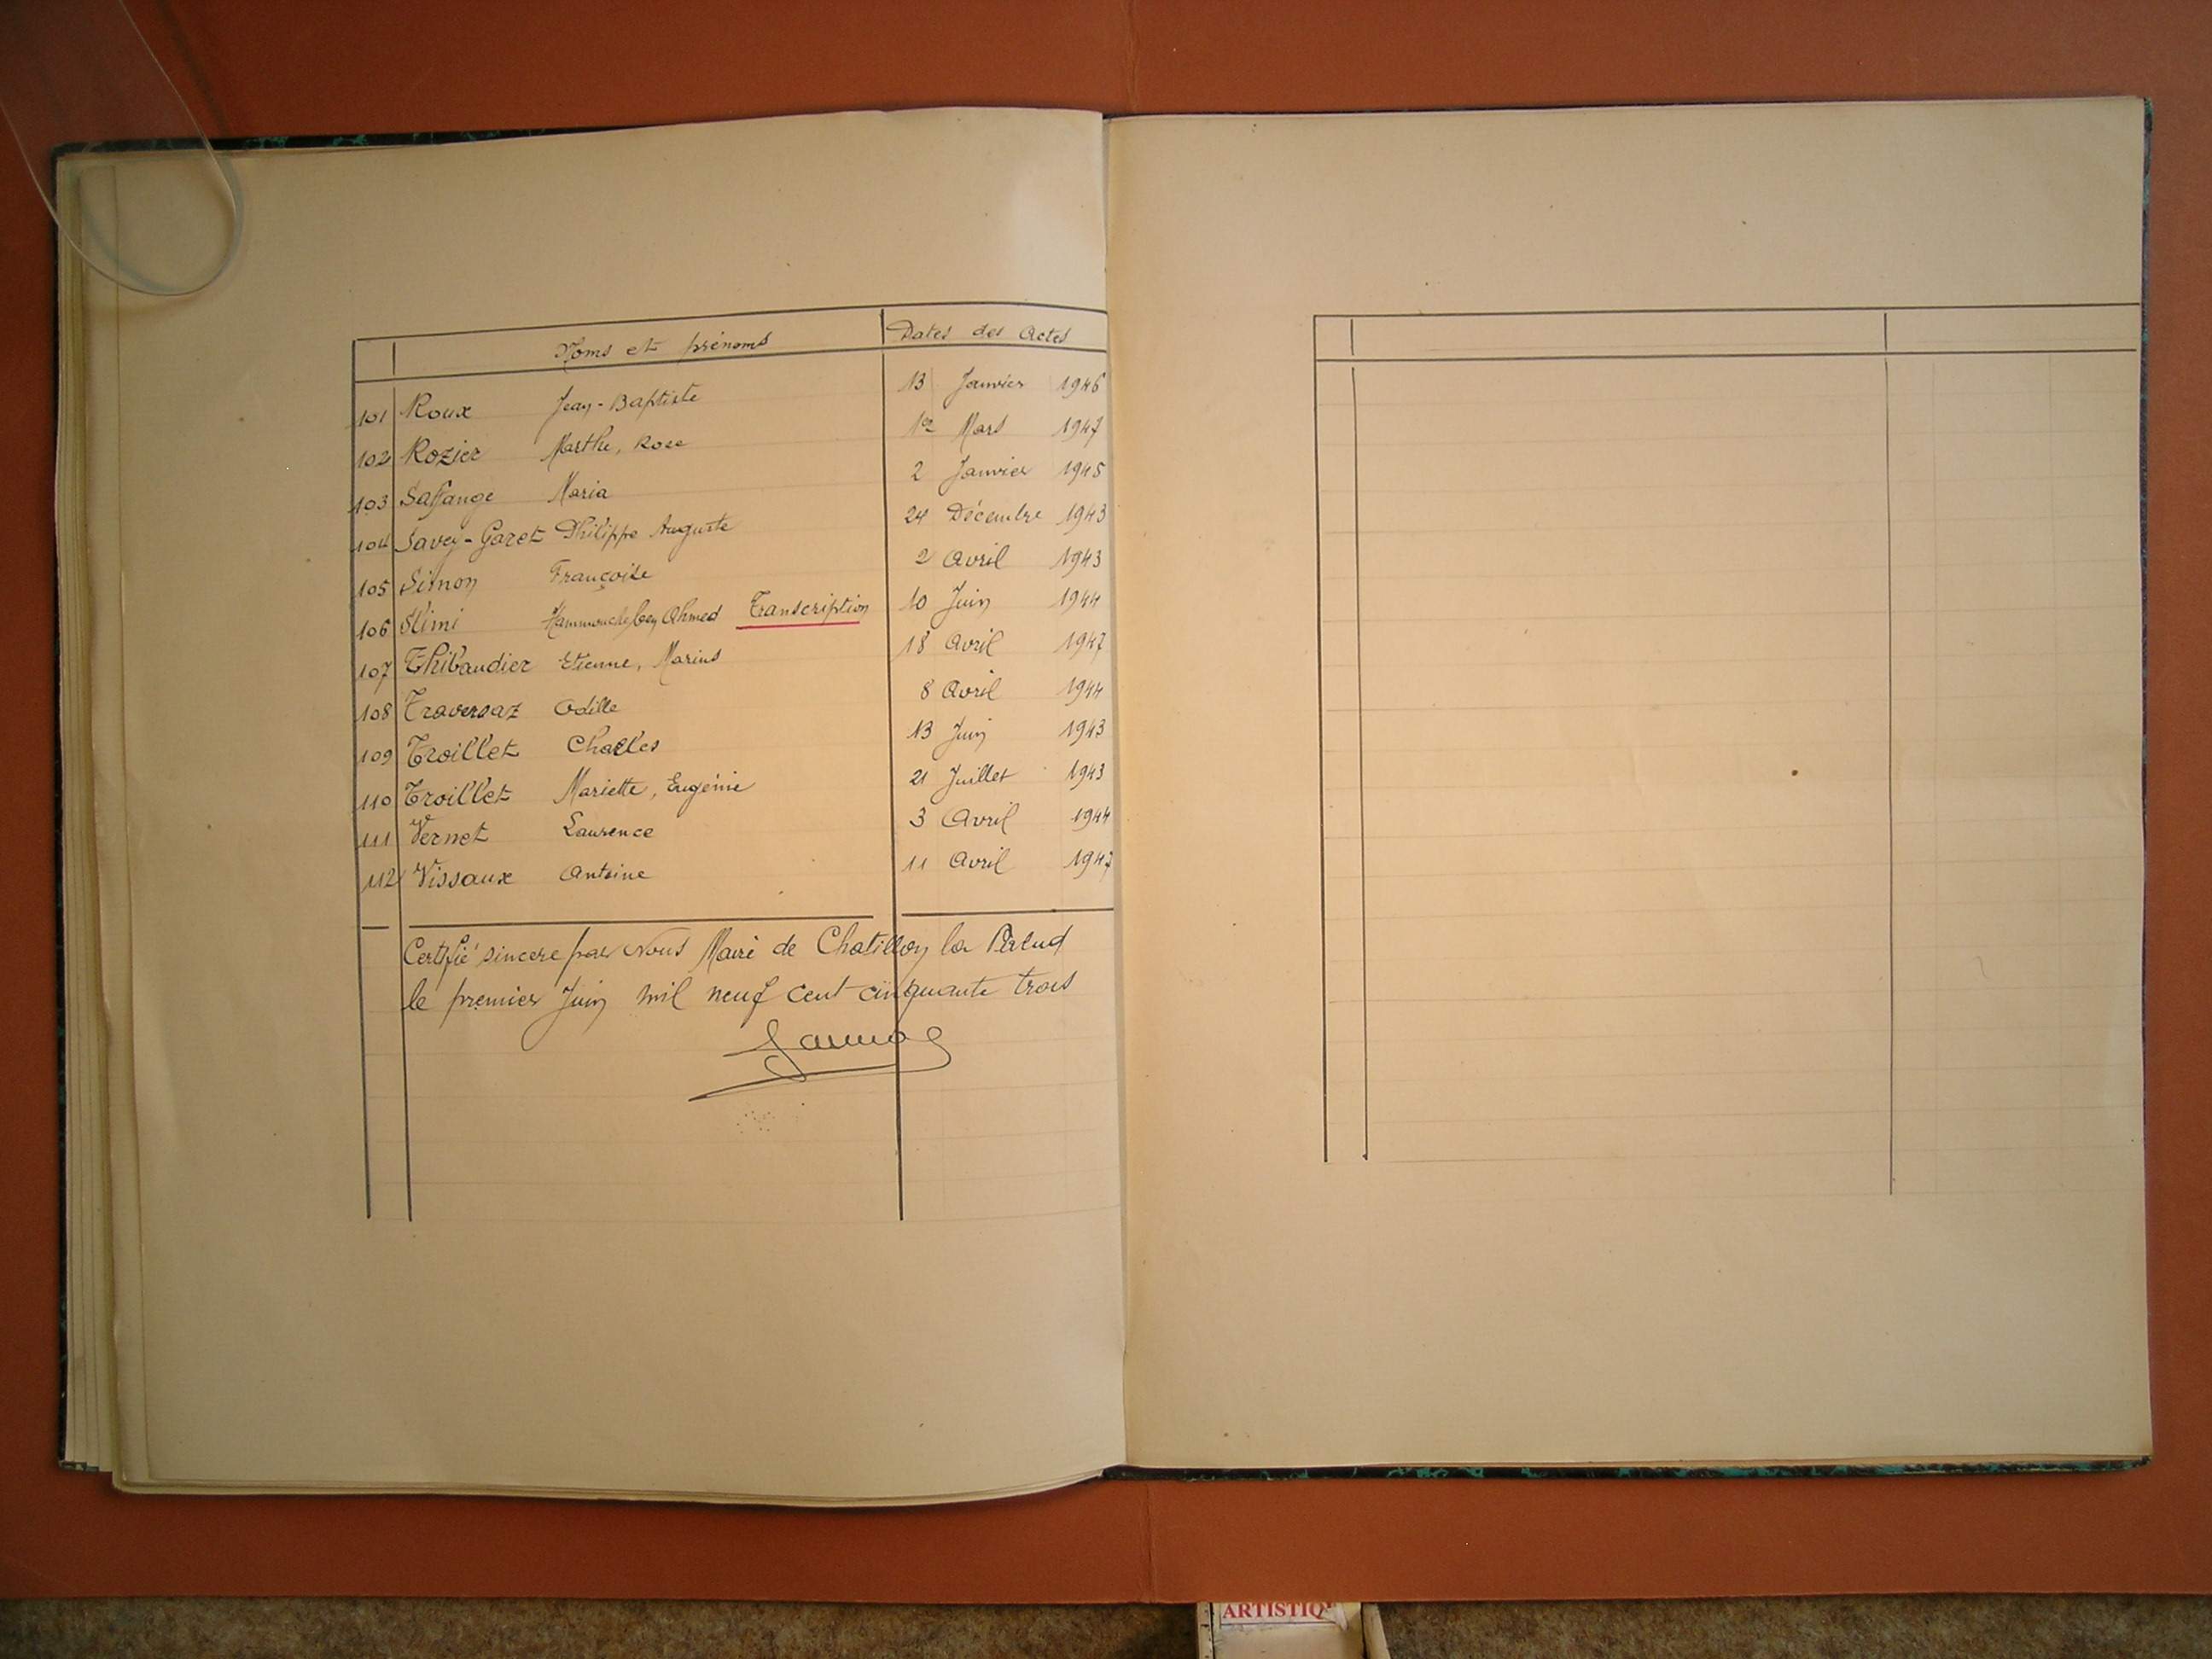 Noms et prénoms Dates des Actes
101 Roux Jean-Baptiste 13 Janvier 1946
102 Rozier Marthe, Rose 1er Mars 1947
103 Saffange Maria 2 Janvier 1945
104 Savey-Garet Philippe Auguste 24 Décembre 1943
105 Simon Françoise 2 Avril 1943
106 Slimi Hammouche ben Ahmed Transcription 10 Juin 1944
107 Thibaudier Etienne, Marius 18 Avril 1947
108 Traversaz Odille 8 Avril 1944
109 Troillet Charles 13 Juin 1943
110 Troillet Mariette, Eugénie 21 Juillet 1943
111 Vernet Laurence 3 Avril 1944
112 Vissaux Antoine 11 Avril 1947
Certifié sincere par Nous Maire de Chatillon la Palud
le premier Juin mil neuf cent cinquante trois
ARTISTIQ